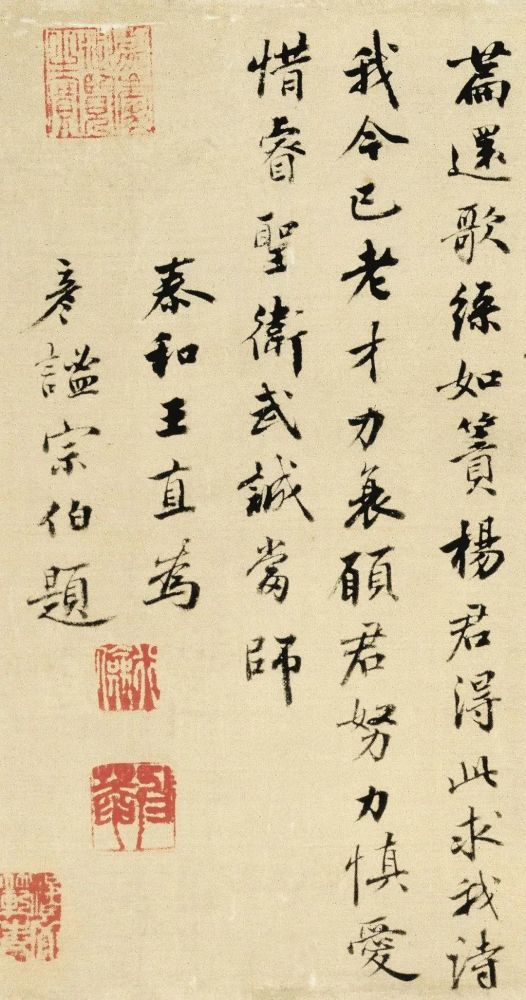 篇還歌綠如簀楊君得此求我詩
我今已老才力衰願君努力慎愛
惜睿聖衛武誠當師
泰和王直為
彥謐宗伯題
嘉慶
御覽
之寶